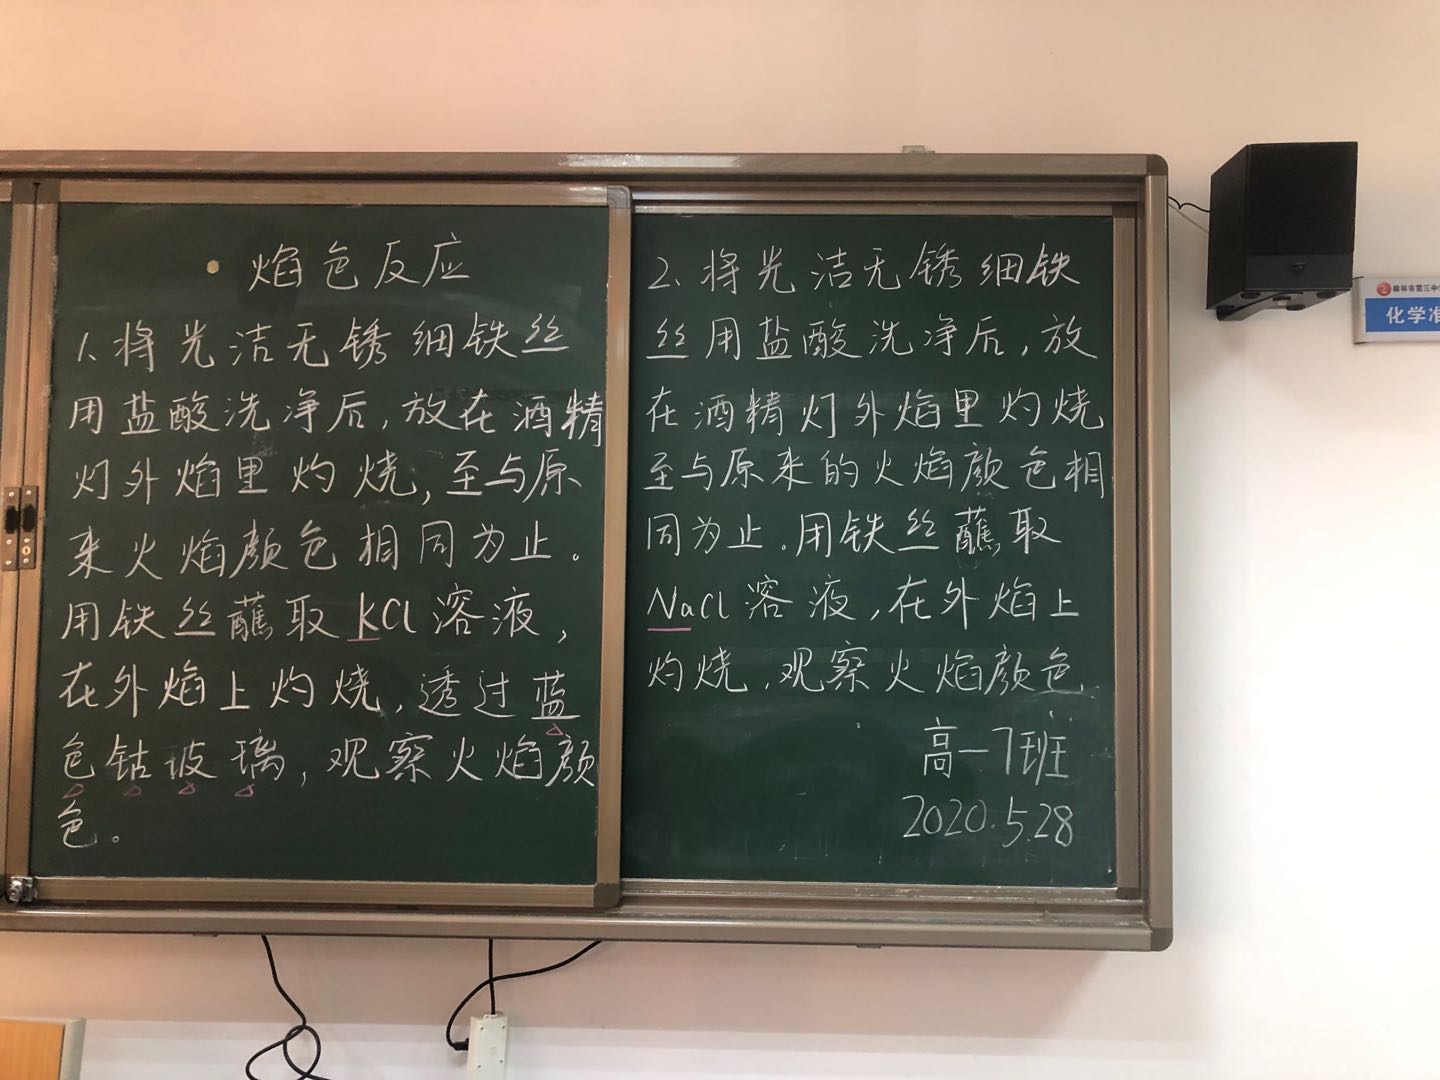 焰色反应
1、将光洁无锈细铁丝
用盐酸洗净后,放在酒精
灯外焰里灼烧,至与原
来火焰颜色相同为止。
用铁丝蘸取KCl溶液,
在外焰上灼烧,透过蓝
色钴玻璃,观察火焰颜
色。
2、将光洁无锈细铁
丝用盐酸洗净后,放
在酒精灯外焰里灼烧
至与原来的火焰颜色相
同为止。用铁丝蘸取
NaCl溶液,在外焰上
灼烧,观察火焰颜色.
高一7班
2020.5.28
榆林市第三中
化学准